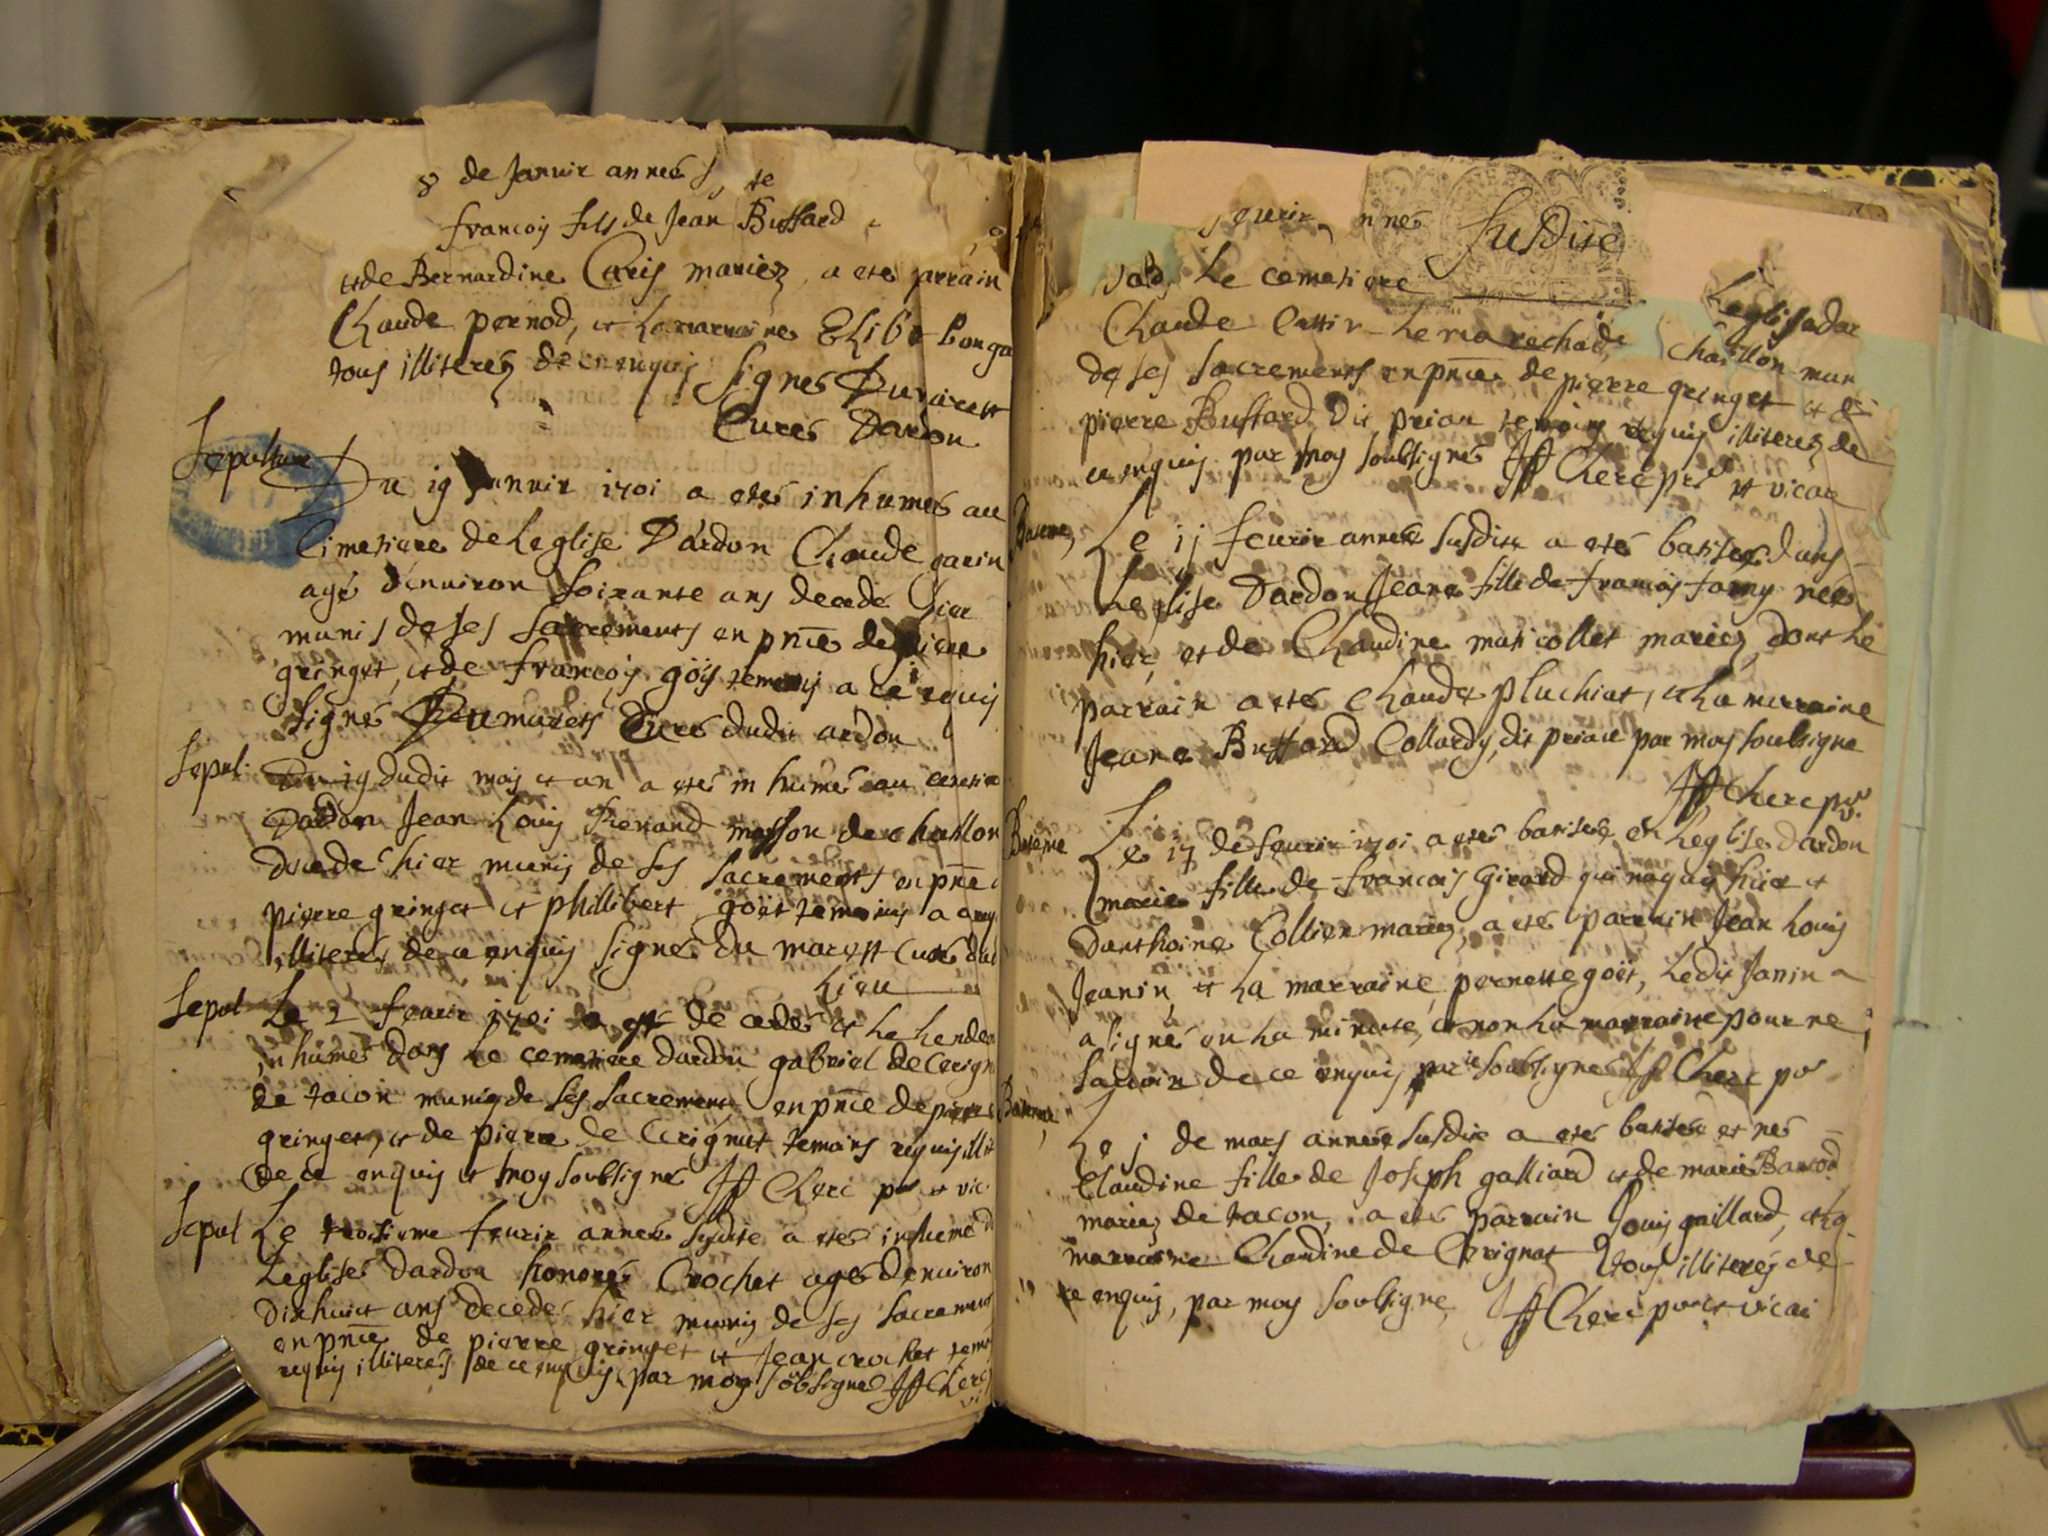 8 de Januir annes
françoy fils de Jean Buffard
et de Bernardine Caris mariez a ete parrain
Claude pernod, et la marraine
tous illiterez de ce enquis Signés
Cures Dardon
Sepulture
Du 19 Januir 1701 a etes inhumes au
Cimetiere de Leglise Dardon Claude garin
agé d'enuiron soixante ans decede hier
munis de ses sacrements en pnce de pierre
gringet, et de françoy göy temoins a ce requis
signés Cures dudit ardon
Sepul
Du 19 dudit moy et an a etes in humes au
Dardon Jean Louis Renand masson de chatlon
decede hier munis de ses sacrements en pnce
pierre gringet et phillibert goët temoins a
illiteres de ce enquis signes du marest Cures
Lieu
Sepul
Le 2 feurir 1701 a este decedes et le
in humes dans Le cemetiere dardon gabriel de Cerign
de tacon munis de ses sacrements en pnce de pierre
gringet, et de pierre de Cerignat temoins requis illit
de ce enquis et moy soubsignes Jff Clerc pre et vic
Sepul
Le troisieme feurir annes susdite a etes inhume
Leglise dardon honorés Crochet ages denuiron
Dixhuit ans decedes hier munis de ses sacrement
en pnce de pierre gringet et Jean crochet tem
requis illiteres de ce enquis par moy sobsignes Jff Clerc
feurir annes susdite
Le cemetiere
Leglise dar
Claude Le marechal de Chatlon mun
de ses sacrements en pnce de pierre gringet et de
pierre Buffard Dit prion temoins requis illiterez de
ce enquis par moy soubsignes Jff Clerc pre et vicae
Bateme
Le 11 feurir annes susdite a etes batises dans
Leglise Dardon Jeane fille de françoy famy nee
hier, et de Claudine maticollet mariez, dont le
parrain a etes Claude pluchiat, et La marraine
Jeane Buffard Collardy, dit priau par moy soubsigne
Jff Clerc pre
Bateme
Le 17 de feurir 1701 a etes batises en Leglise dardon
marie fille de françois Girard qui naquy hier et
Danthoine Collien mariez, a etes parrain Jean Louis
Jeanin et La marraine pernette goët, Ledit Janin
a signés en La minute, et non La marraine pour ne
Sauoir de ce enquis par le soubsignes Jff Clerc pre
Bateme
Le j de mars annes susdite a etes batises et nes
Claudine fille de Joseph galliard et de marie Barcod
mariez de tacon, a etes parrain Jouis gaillard, et La
marraine Claudine de Cerignat tous illiterés de
ce enquis, par moy soubsigne Jff Clerc pre et vicai